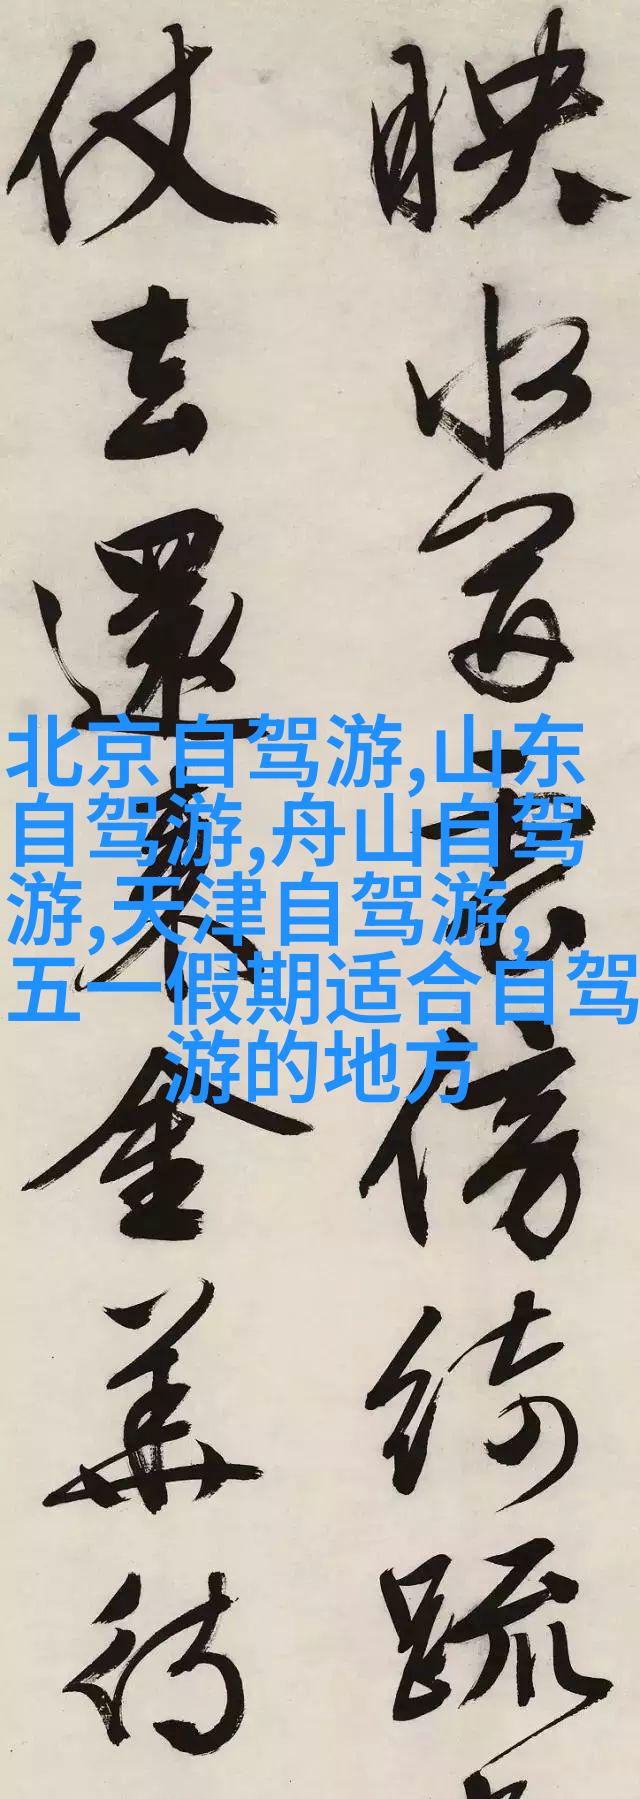 映水云傍綺疏
仗去還來金華待
北京自驾游,山东
自驾游,舟山自驾
游,天津自驾游,
五一假期适合自驾
游的地方